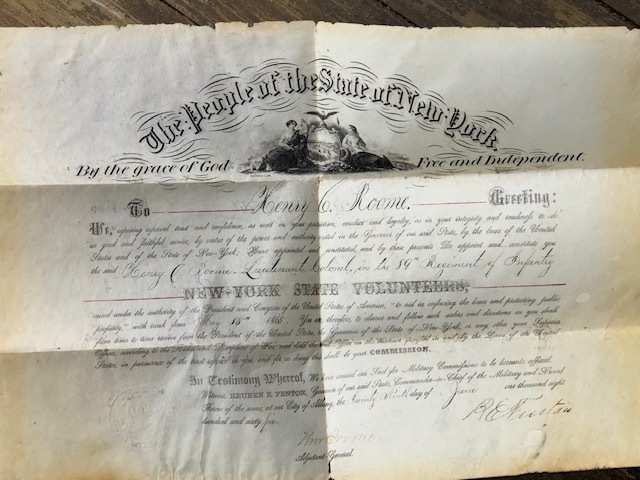 The People of the State of New-York
By the grace of God Free and Independent.
To Henry C. Roome. Greeting:
We, reposing special trust and confidence, as well in your patriotism, conduct and loyalty, as in your integrity and readiness to do
us good and faithful service, by virtue of the power and authority vested in the Governor of our said State, by the laws of the United
States and of the State of New-York, Have appointed and constituted, and by these presents Do appoint and constitute you
the said Henry C Roome. Lieutenant Colonel, in the 89th Regiment of Infantry
NEW-YORK STATE VOLUNTEERS,
raised under the authority of the President and Congress of the United States of America, "to aid in enforcing the laws and protecting public
property," with rank from May 15th 1865 You are therefore, to observe and follow such orders and directions as you shall
from time to time receive from the President of the United States, the Governor of the State of New-York, or any other your Superior
Officer, according to the Rules and Discipline of War, and hold the said Office in the manner specified in and by the Laws of the United
States, in pursuance of the trust reposed in you, and for so doing this shall be your COMMISSION.
In Testimony Whereof, We have caused our Seal for Military Commissions to be hereunto affixed.
Witness, REUBEN E. FENTON, Governor of our said State, Commander-in-Chief of the Military and Naval
Forces of the same, at our City of Albany, the twenty day of June one thousand eight
hundred and sixty five
R E Fenton
Adjutant-General.